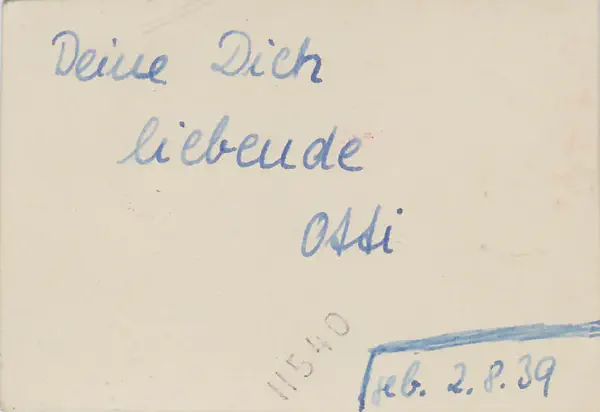 Deine Dich
liebende
Otti
11540
geb. 2.8.39